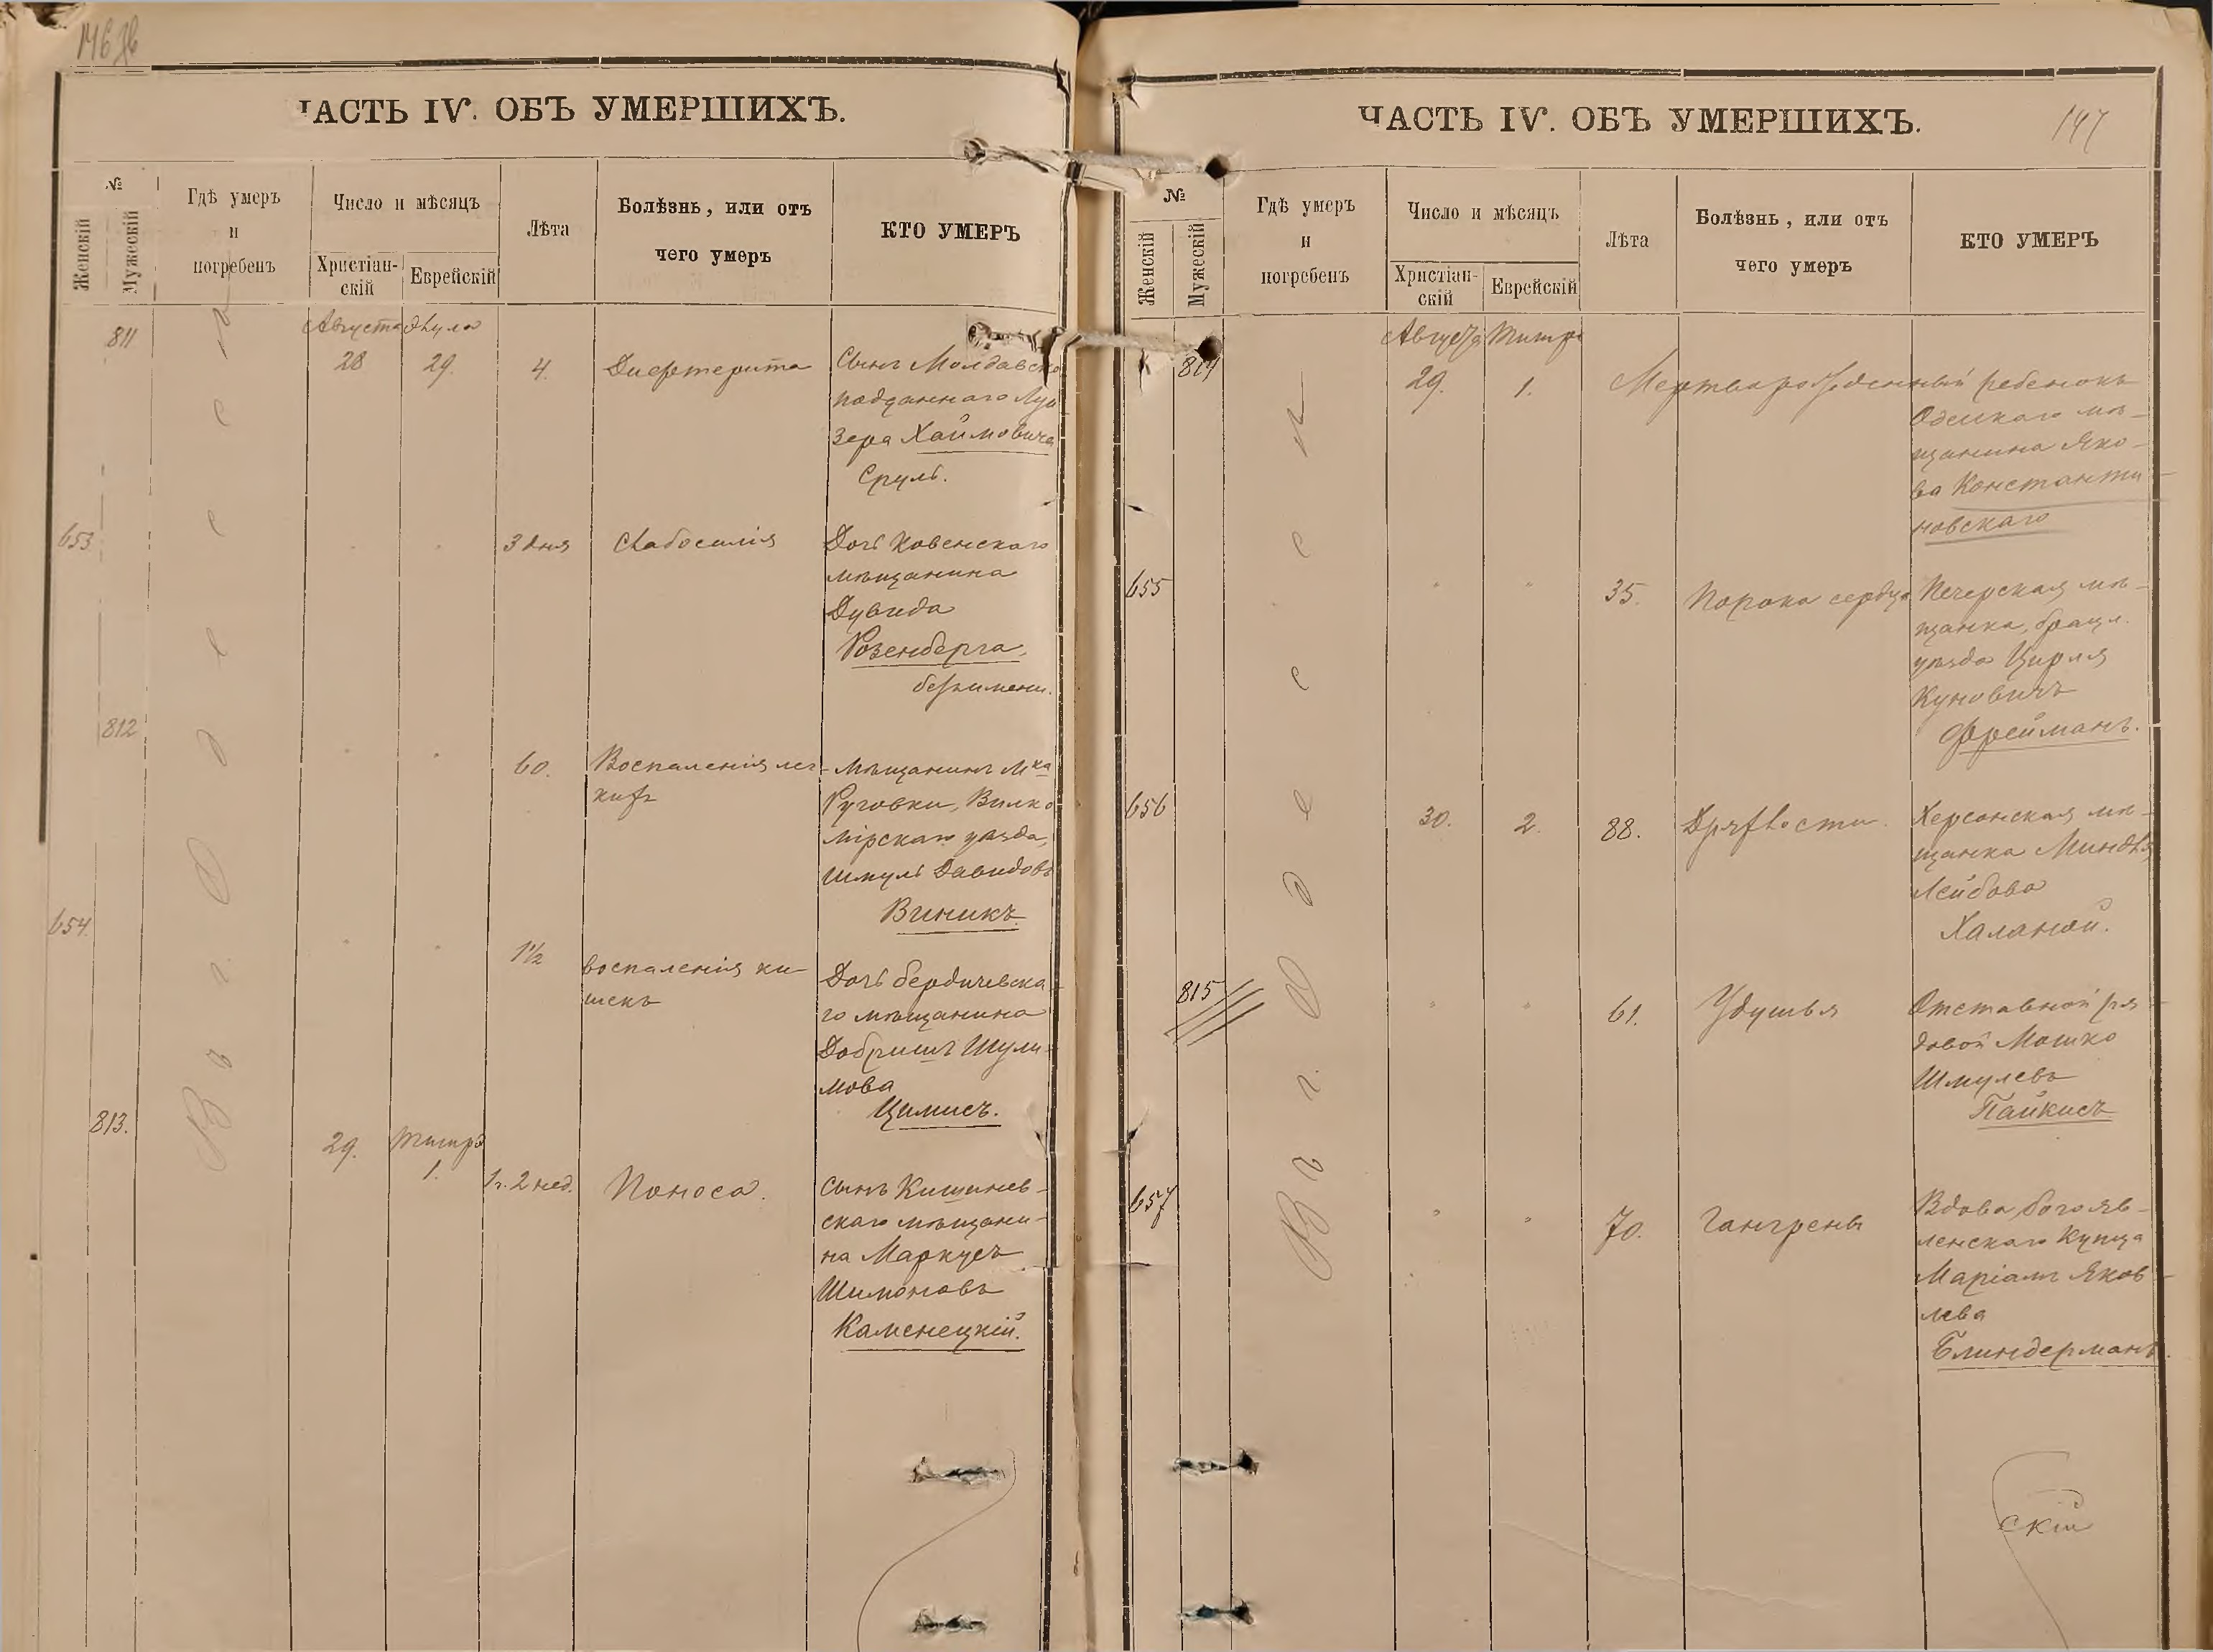 146 об
ЧАСТЬ IV. ОБЪ УМЕРШИХЪ.
№
Женскій
Мужескій
Гдѣ умеръ
и
погребенъ
Число и мѣсяцъ
Христіан-
скій
Еврейскій
Лѣта
Болѣзнь, или отъ
чего умеръ
КТО УМЕРЪ
Въ г. Одессѣ
811
Августа Элула
28 29. 4. Дифтерита Сынъ Молдавско
подданнаго Луи
зера Хаимовича
Сруль.
653 " " 3 дня Слабосилія Дочь Ковенскаго
мѣщанина
Дувида
Розенберга,
безъимени.
812 " " 60. Воспаленія лег- Мѣщанинъ М-ка
кихъ Руговки, Вилко
мірскаго уѣзда,
Шмуль Давидовъ
Виникъ.
654. " " 1½ воспаленія ки- Дочь бердичевска-
шекъ го мѣщанина
Добришъ Шули-
мова
Цимисъ.
813. 29. Тишри
1. 1 г. 2 нед. Поноса. Сынъ Кишинев-
скаго мѣщани-
на Маркусъ
Шимоновъ
Каменецкій.
ЧАСТЬ IV. ОБЪ УМЕРШИХЪ.
147
№
Женскій
Мужескій
Гдѣ умеръ
и
погребенъ
Число и мѣсяцъ
Христіан-
скій
Еврейскій
Лѣта
Болѣзнь, или отъ
чего умеръ
КТО УМЕРЪ
Въ г. Одессѣ
Августа Тишри
814 29. 1. Мертворожденный ребенокъ
Одесскаго мѣ-
щанина Яко-
ва Константи-
новскаго
655 " " 35. Порока сердца Печерская мѣ-
щанка, брацл.
уѣзда Цирля
Куновичъ
Фрейманъ.
656 30. 2. 88. Дряхлости. Херсонская мѣ-
щанка Миндля
Лейбова
Халаной.
815 " " 61. Удушья Отставной ря-
довой Мошко
Шмулевъ
Пайкисъ
657 " " 70. Гангрены Вдова, богояв-
ленскаго купца
Маріамъ Яков-
лева
Блиндерманъ.
скій